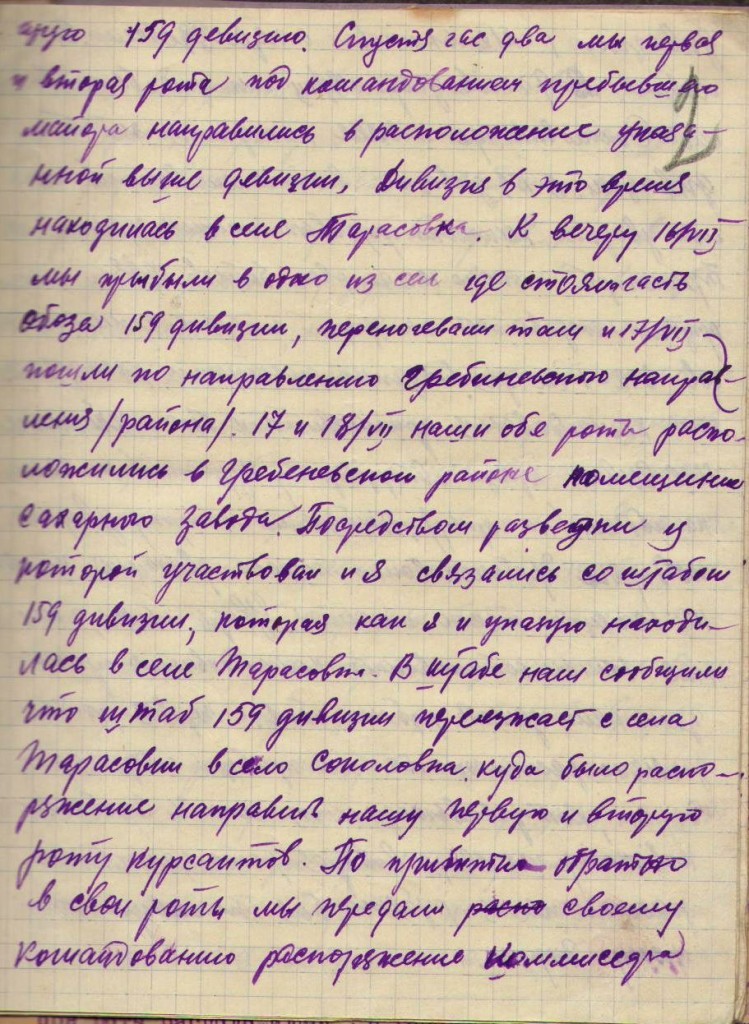 2
159 девизию. Спустя час два мы первая
и вторая рота под командованием пребывшего
майора направились в расположение указа-
нной выше девизии, Дивизия в это время
находилась в селе Тарасовка. К вечеру 16/VII
мы прыбыли в одно из сел где стояли часть
обоза 159 дивизии, переночевали там и 17/VII
пошли по направлению Гребеневского направ-
ления /района/. 17 и 18/VII наши обе роты распо-
ложились в Гребеневском районе помещение
сахарного завода. Посредством разведки у
которой участвовал и я связались со штабом
159 дивизии, которая как я и указую находи-
лась в селе Тарасовки. В штабе нам сообщили
что штаб 159 дивизии переезжает с села
Тарасовки в село Соколовка, куда было распо-
ржение направить нашу первую и вторую
роту курсантов. По прибытию обратно
в свои роты мы передали своему
командованию распоржение коммисара